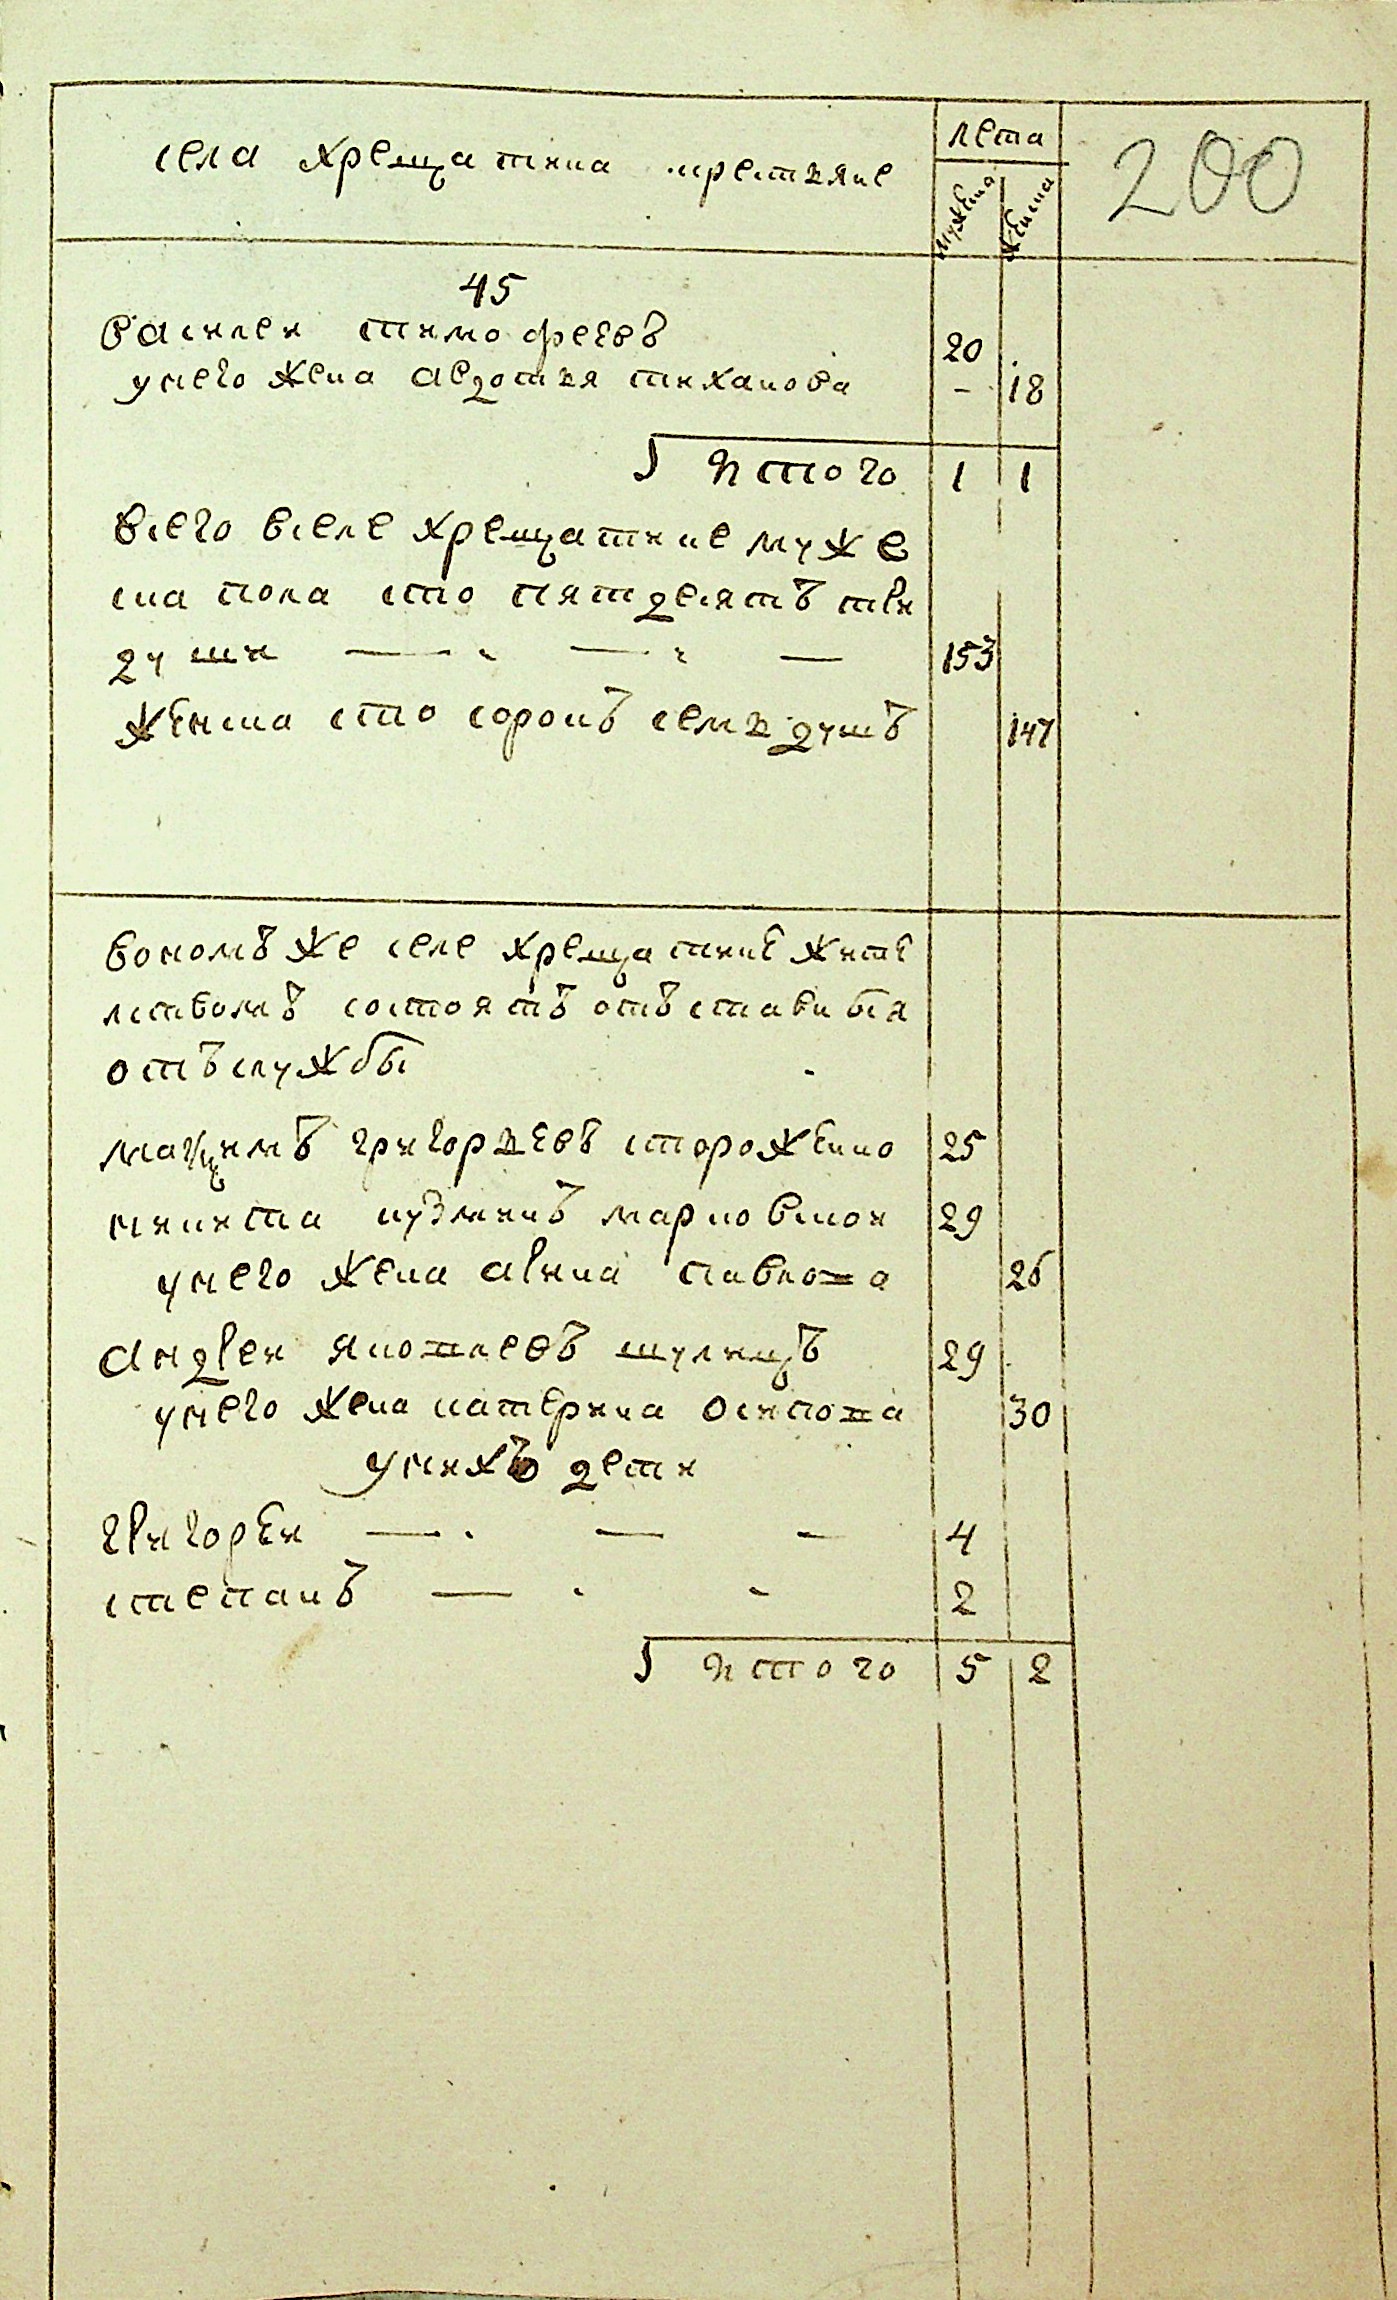 села хрещатика крестьяне
лета
мужеска
женска
200
45
василеи тимофеевъ 20
унего жена авдотья тиханова - 18
итого 1 1
всего вселе хрещатике муже
ска пола сто пятдесятъ три
души 153
женска сто сорокъ семь душъ 147
вономъ же селе хрещатике жите
лствомъ состоятъ отъставныя
отъ службы
максимъ григорьевъ стороженко 25
никита кузминъ марковскои 29
унего жена ирина павлова 26
андреи яковлевъ шулицъ 29
унего жена катерина осипова 30
унихъ дети
григореи 4
степанъ 2
итого 5 2